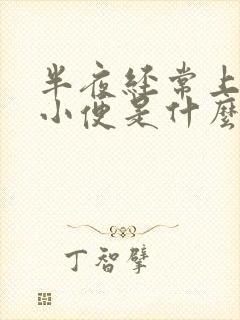 半夜经常上
小便是什麽
丁智擘